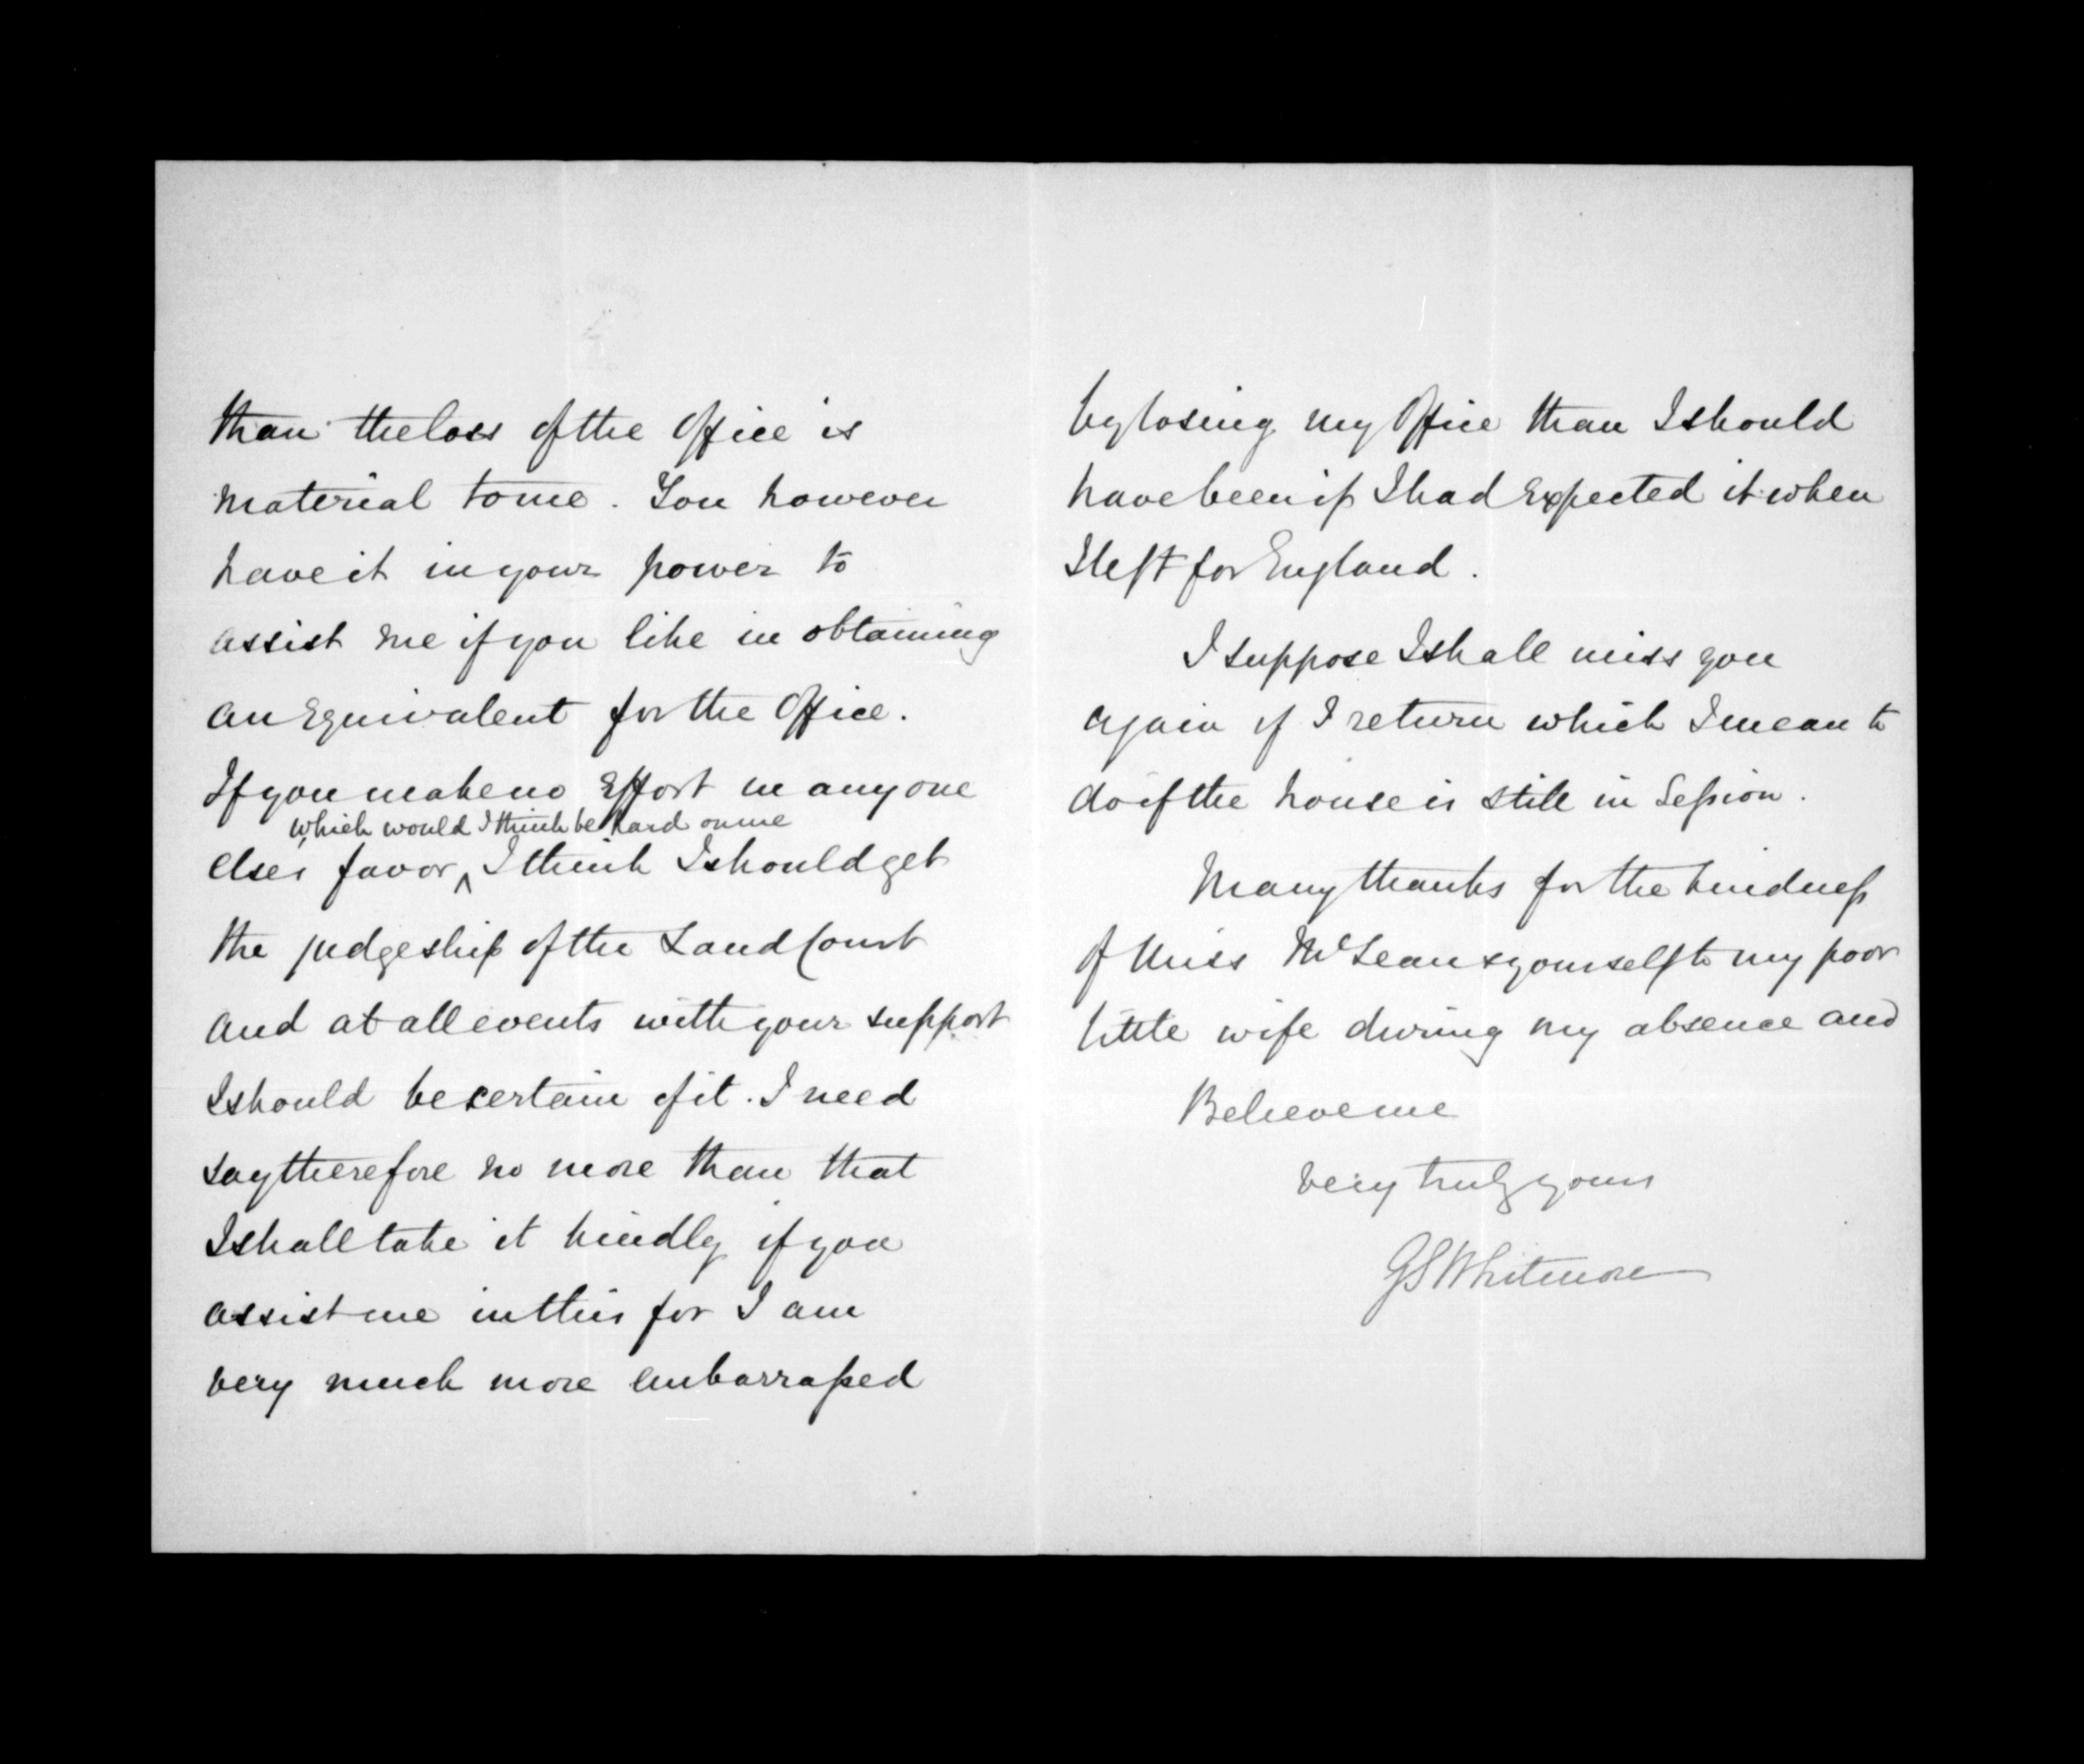 than the loss of the Office is
material to me. You however
have it in your power to
assist me if you like in obtaining
an Equivalent for the Office.
If you make no Effort in any one
which would I think be hard on me
elses favor ^ I think I should get
the judgeship of the Land Court
and at all events with your support
I should be certain of it. I need
say therefore no more than that
I shall take it kindly if you
assist me in this for I am
very much more embarrassed
by losing my Office than I should
have been if I had Expected it when
I left for England.
I suppose I shall miss you
again if I return which I mean to
do if the house is still in Session.
Many thanks for the kindness
of Miss McLean & yourself to my poor
little wife during my absence and
Believe me
very truly yours
GSWhitmore